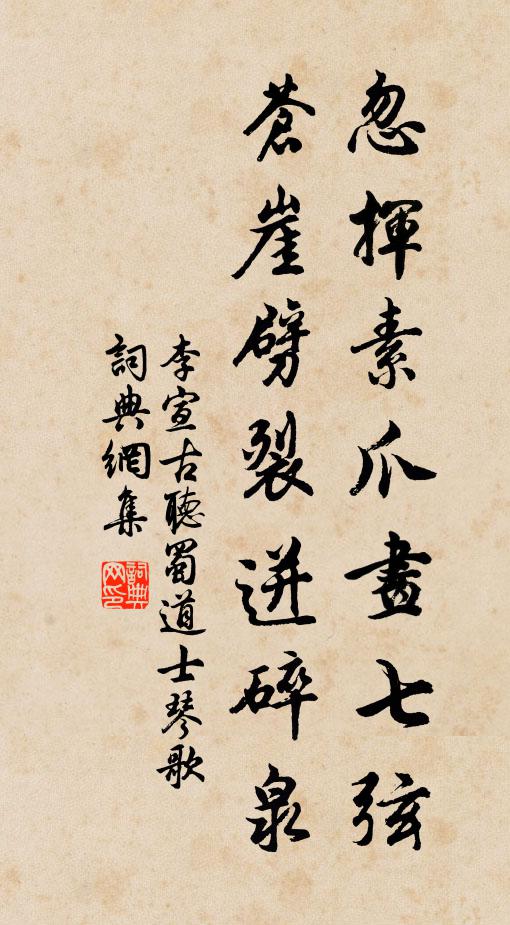 忽揮素爪畫七弦
蒼崖劈裂迸碎泉
李宣古聽蜀道士琴歌
詞典網集
詞典网印